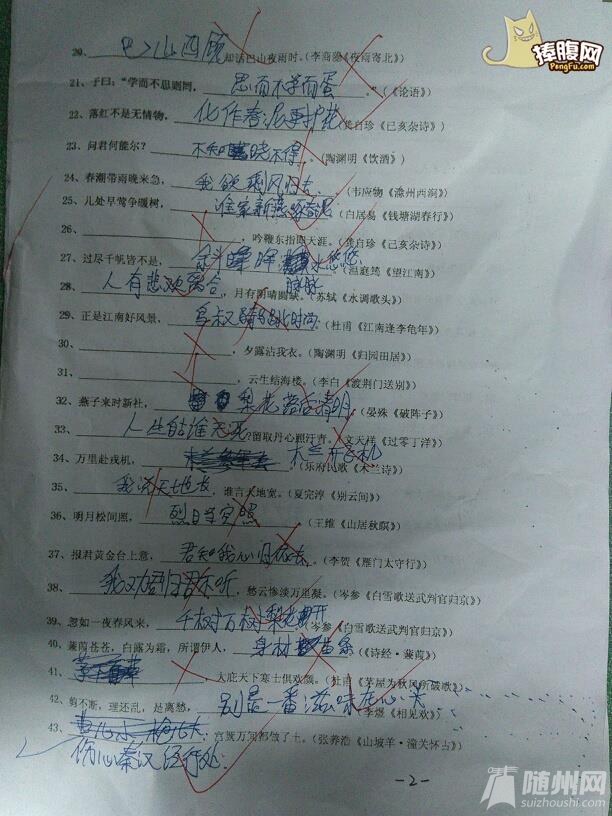 捧腹网
PengFu.com
20、巴山西顾知话巴山夜雨时。(李商隐《夜雨寄北》)
21、子曰:“学而不思则罔,思而不学而蛋。”(《论语》)
22、落红不是无情物,化作春泥更护花(龚自珍《己亥杂诗》)
23、问君何能尔?不知晓不得。(陶渊明《饮酒》)
24、春潮带雨晚来急,我欲乘风归去。(韦应物《滁州西涧》)
25、儿处早莺争暖树,谁家新燕啄春泥(白居易《钱塘湖春行》)
26、,吟鞭东指即天涯。(龚自珍《己亥杂诗》)
27、过尽千帆皆不是,余斜晖脉脉水悠悠。(温庭筠《望江南》)
28、人有悲欢离合,月有阴晴圆缺。(苏轼《水调歌头》)
29、正是江南好风景,时间(杜甫《江南逢李龟年》)
30、,夕露沾我衣。(陶渊明《归园田居》)
31、,云生结海楼。(李白《渡荆门送别》)
32、燕子来时新社,梨花落后清明。(晏殊《破阵子》)
33、人生自谁无死?留取丹心照汗青。(文天祥《过零丁洋》)
34、万里赴戎机,木兰开飞机(乐府民歌《木兰诗》)
35、我流天地友,谁言天地宽。(夏完淳《别云间》)
36、明月松间照,烈日当空照(王维《山居秋暝》)
37、报君黄金台上意,君知我心归依去。(李贺《雁门太守行》)
38、我劝君归君不听,愁云惨淡万里凝。(岑参《白雪歌送武判官归京》)
39、忽如一夜春风来,千树万树梨花开(岑参《白雪歌送武判官归京》)
40、蒹葭苍苍,白露为霜,所谓伊人,身材苗条(《诗经·蒹葭》)
41、,大庇天下寒士俱欢颜。(杜甫《茅屋为秋风所破歌》)
42、剪不断,理还乱,是离愁,别是一番滋味在心头(李煜《相见欢》)
43、宫阙万间都做了土。(张养浩《山坡羊·潼关怀古》)
伤心秦汉经行处。
-2-
随州网
suizhoushi.com